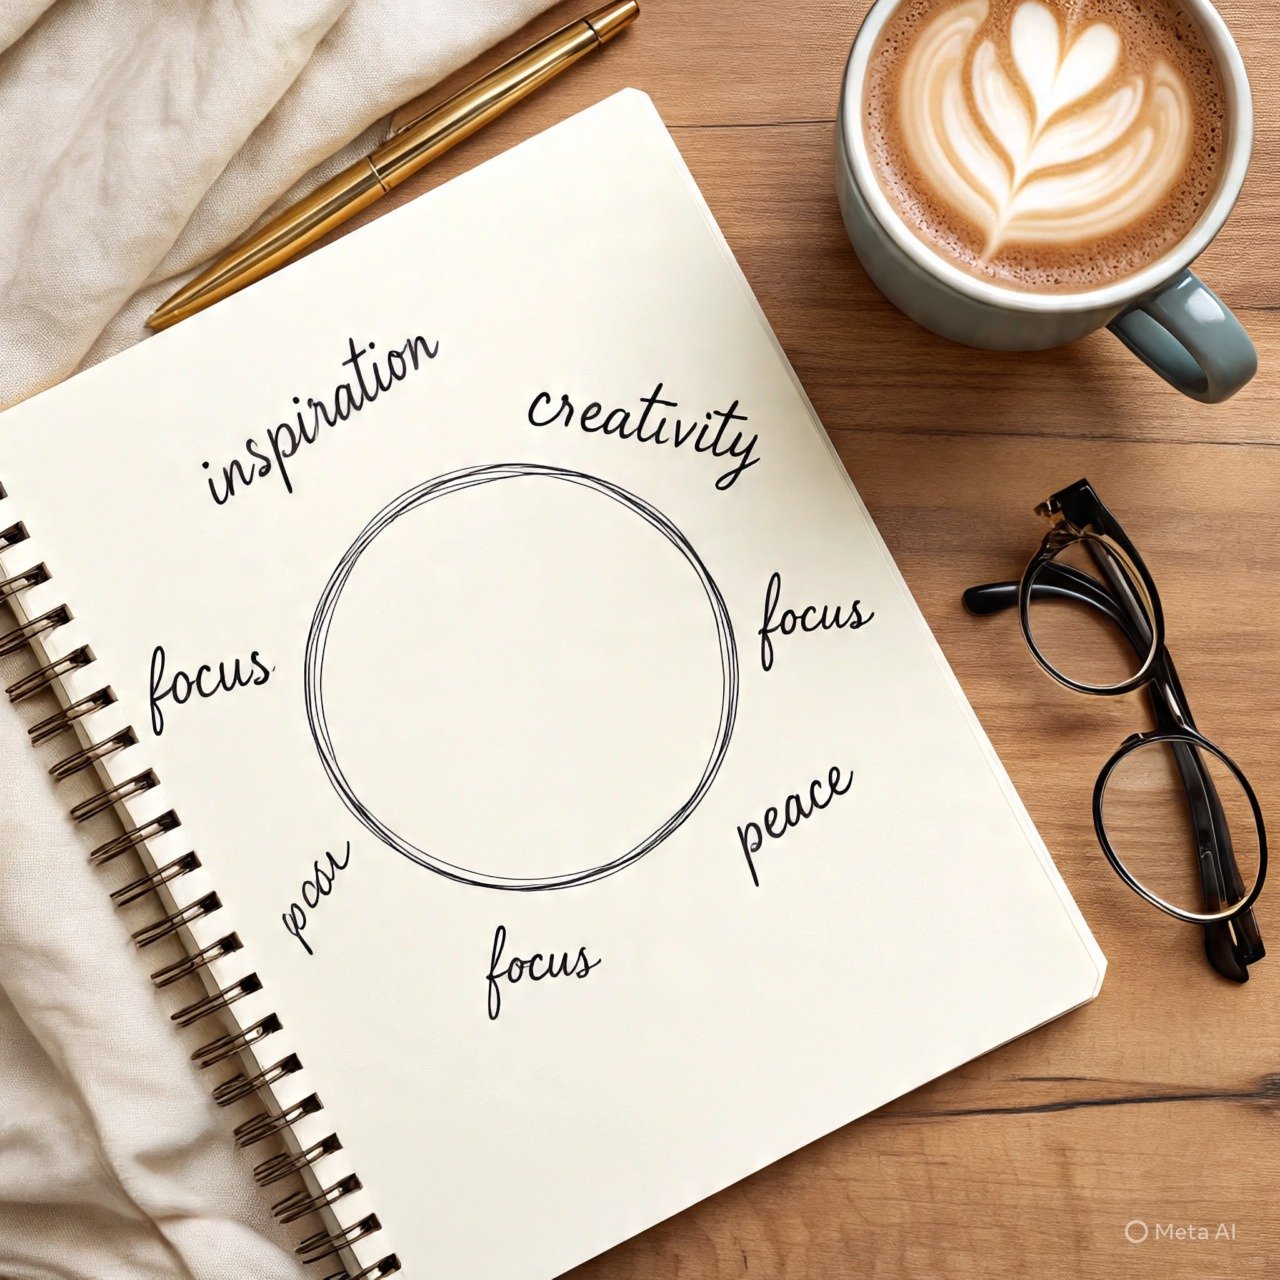 inspiration
creativity
focus
focus
peace
focus
Meta AI